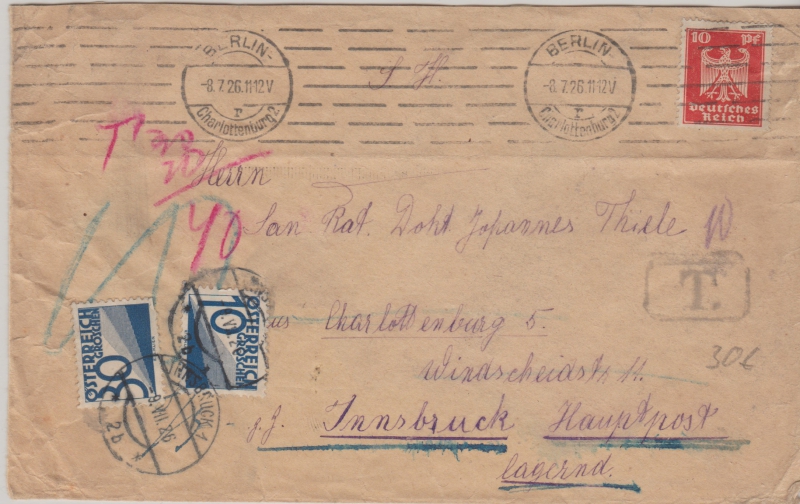 BERLIN-
-8.7.26.11-12V
r
Charlottenburg 2.
BERLIN-
-8.7.26.11-12V
r
Charlottenburg 2.
10 Pf
Deutsches
Reich
S H.
T
20
40
Herrn
San Rat. Dokt Johannes Thiele
T.
aus Charlottenburg 5.
Windscheidstr. 11.
30€
z. Z. Innsbruck Hauptpost
lagernd.
30
ÖSTERREICH
GROSCHEN
10
ÖSTERREICH
GROSCHEN
9.VII.26
2b